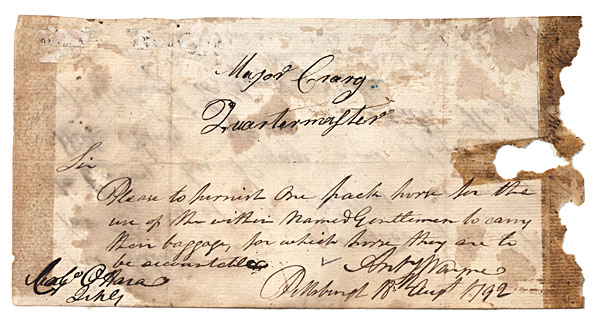 Major Craig
Quartermaster
Sir
Please to furnish One pack horse for the
use of the within Named Gentlemen to carry
their baggage, for which horse they are to
be accountable
Anty Wayne
Pittsburgh 18th Augt 1792
O'Hara